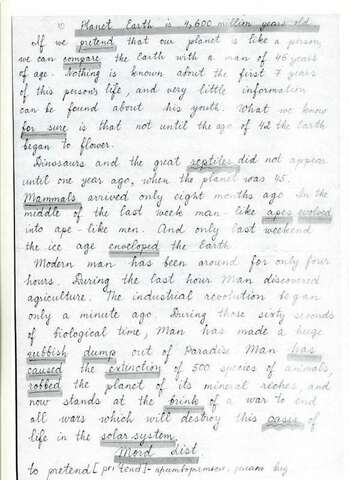 Planet Earth is 4,600 million years old
If we pretend that our planet is like a person
we can compare the Earth with a man of 46 years
of age. Nothing is known about the first 7 years
of this person's life, and very little information
can be found about his youth. What we know
for sure is that not until the age of 42 the Earth
began to flower.
Dinosaurs and the great reptiles did not appear
until one year ago, when the planet was 45.
Mammals arrived only eight months ago. In the
middle of the last week man-like apes evolved
into ape-like men. And only last weekend
the ice age enveloped the Earth
Modern man has been around for only four
hours. During the last hour Man discovered
agriculture. The industrial revolution began
only a minute ago. During those sixty seconds
of biological time, Man has made a huge
rubbish dump out of Paradise Man has
caused the extinction of 500 species of animals,
robbed the planet of its mineral riches, and
now stands at the brink of a war to end
all wars which will destroy this oasis of
life in the solar system.
Word list
to pretend [pri'tend] -